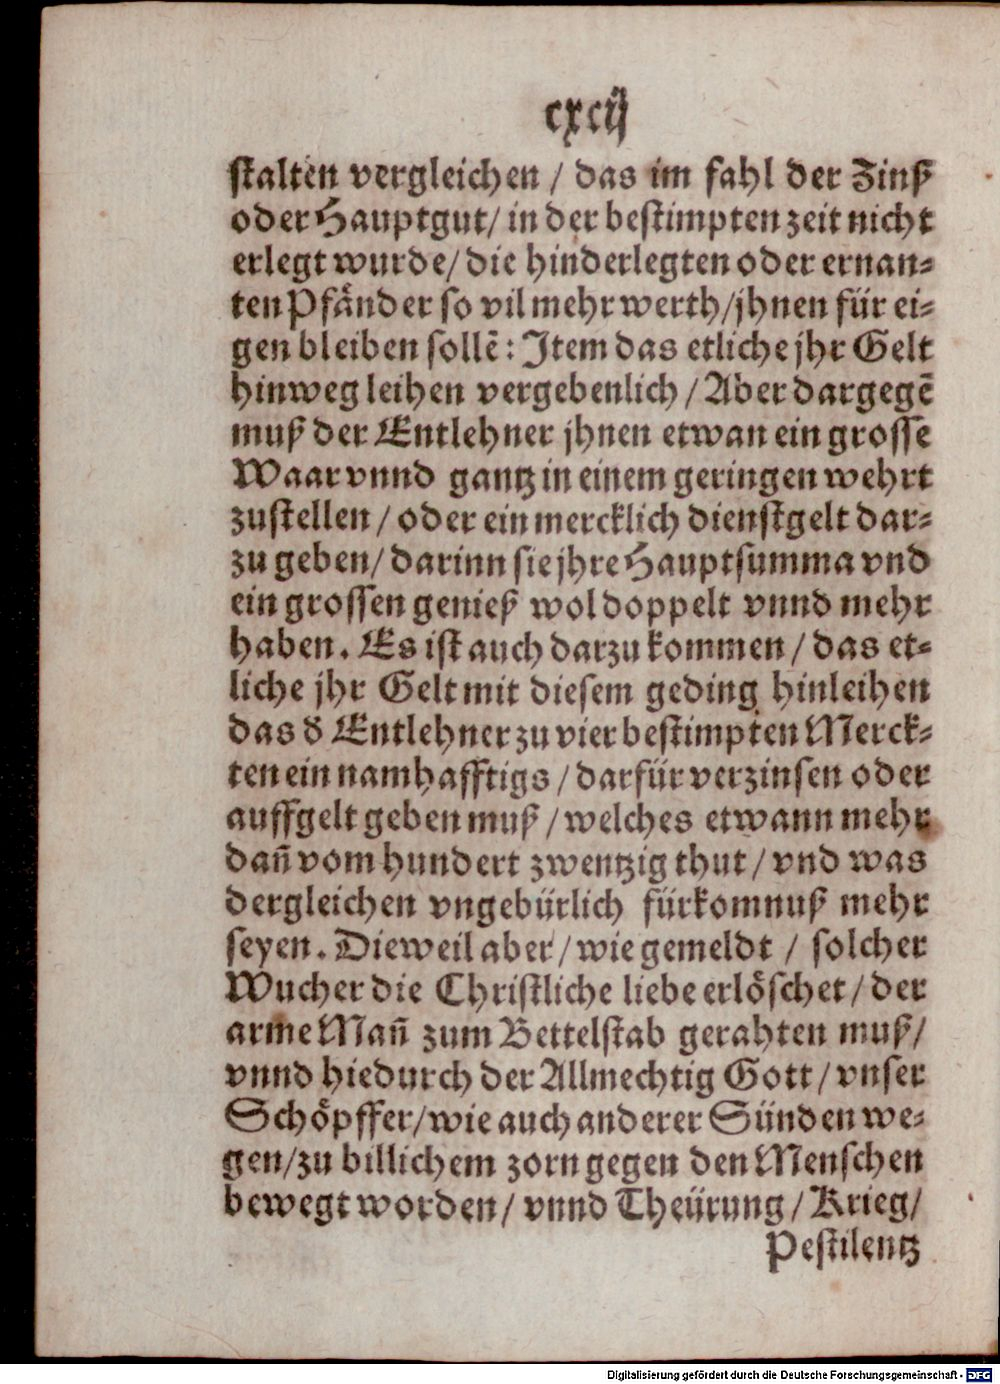 cxcij
stalten vergleichen / das im fahl der Zinß
oder Hauptgut / in der bestimpten zeit nicht
erlegt wurde / die hinderlegten oder ernan⸗
ten Pfånder so vil mehr werth / jhnen für ei⸗
gen bleiben sollẽ: Item das etliche jhr Gelt
hinweg leihen vergebenlich / Aber dargegẽ
muß der Entlehner jhnen etwan ein grosse
Waar vnnd gantz in einem geringen wehrt
zustellen / oder ein mercklich dienstgelt dar⸗
zu geben / darinn sie jhre Hauptsumma vnd
ein grossen genieß wol doppelt vnnd mehr
haben. Es ist auch darzu kommen / das et⸗
liche jhr Gelt mit diesem geding hinleihen
das d̕ Entlehner zu vier bestimpten Merck⸗
ten ein namhafftigs / darfür verzinsen oder
auffgelt geben muß / welches etwann mehr
dañ vom hundert zwentzig thut / vnd was
dergleichen vngebürlich fürkomnuß mehr
seyen. Dieweil aber / wie gemeldt / solcher
Wucher die Christliche liebe erlöschet / der
arme Mañ zum Bettelstab gerahten muß /
vnnd hiedurch der Allmechtig Gott / vnser
Schöpffer / wie auch anderer Sünden we⸗
gen / zu billichem zorn gegen den Menschen
bewegt worden / vnnd Theürung / Krieg /
Pestilentz
Digitalisierung gefördert durch die Deutsche Forschungsgemeinschaft - DFG